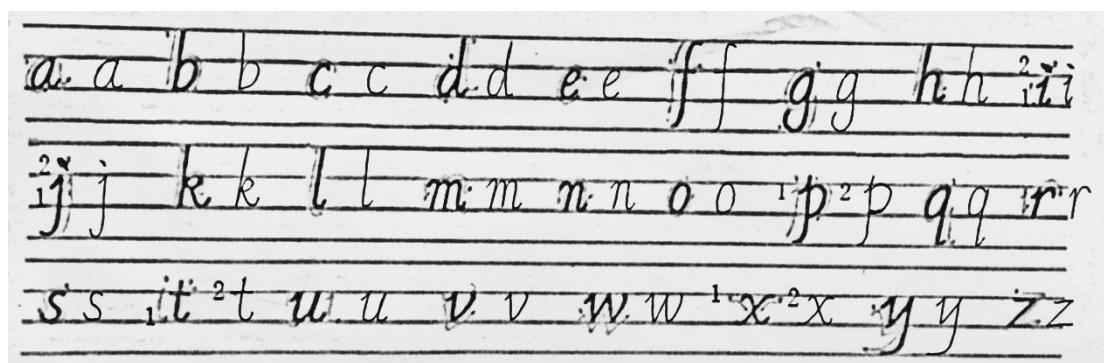 a a b b c c d d e e f f g g h h 2 1 i i i
2 1 j j k k l l m m n n o o 1 p 2 p q q 1 r r
s s 1 t 2 t u u v v w w 1 x 2 x y y z z